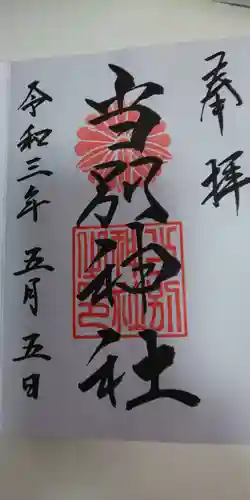 奉拝
当別神社
令和三年五月五日